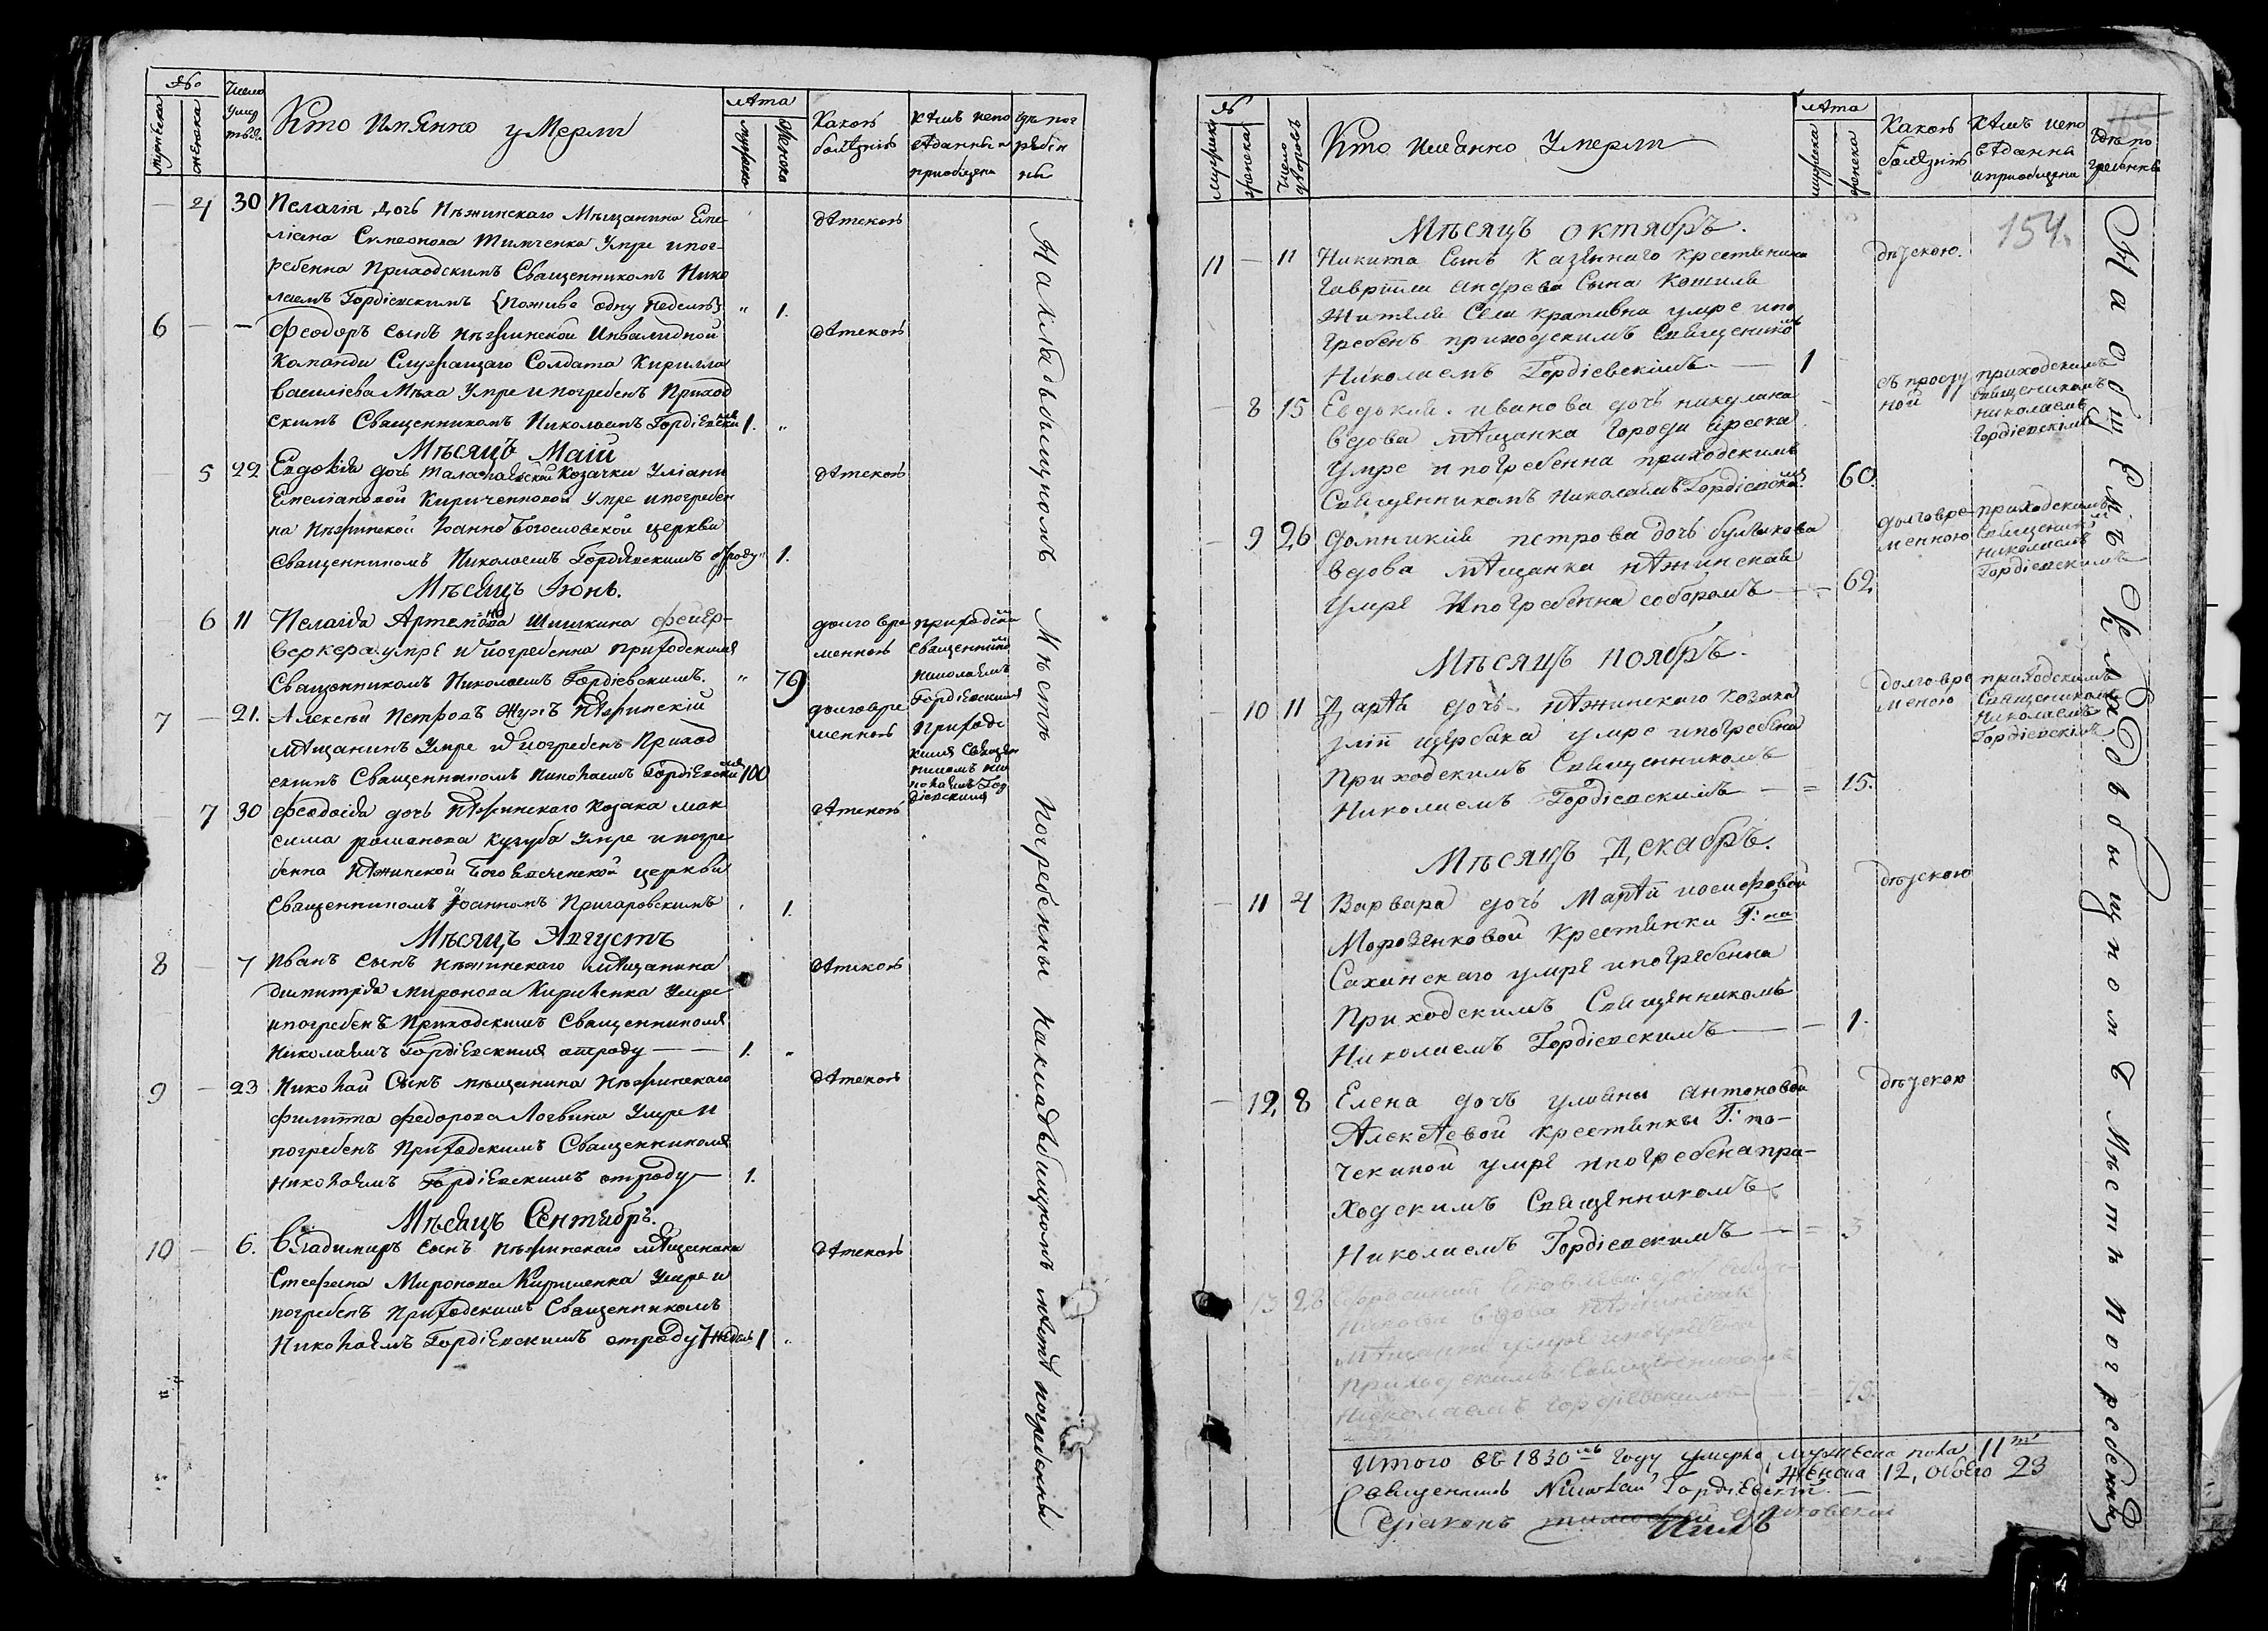 №
мужеска
женска
Число умертвія
Кто имянно умерли
лѣта
мужеска
женска
Какою болѣзнію
кѣмъ исповѣданны и приобщены
гдѣ погребены
4 30 Пелагія дочь Нѣжинскаго Мѣщанина Еме-
ліана Симеонова Тимченка умре и пог-
ребенна Приходскимъ Священникомъ Нико
лаемъ Гордіевскимъ (поживе одну неделю) " 1.
дѣтскою
6 — — Феодоръ сынъ Нѣжинской Инвалидной
Команди Служащаго Солдата Кирилла
Василіева Мѣха Умре и погребенъ Приход
скимъ Священникомъ Николаемъ Гордіевским 1. "
дѣтскою
Мѣсяцъ Маій
5 22 Евдокія дочь Козачки Уліаны
Емеліановой Кириченковой Умре и погребен
на Нѣжинской Іоанно Богословской церкви
Священникомъ Николаемъ Гордіевскимъ отроду " 1.
дѣтскою
Мѣсяцъ Іюнь.
6 11 Пелагія Артемова Шишкина фейер-
веркера умре и погребенна приходскимъ
Священникомъ Николаемъ Гордіевскимъ. " 79
долговременною
приходским Священнико Николаемъ Гордіевскимъ
7 — 21. Алексѣй Петровъ Жукъ Нѣжинскій
мѣщанинъ Умре и погребенъ Приход
скимъ Священникомъ Николаемъ Гордіевским 100
долговременною
Приходскимъ Священникомъ Николаемъ Гордіевскимъ
7 30 Феодосія дочь Нѣжинскаго Козака мак
сима романова Кугуба Умре и погре
бенна Нѣжинской Богоявленской церкви
Священникомъ Іоанномъ Пригаровскимъ " 1.
дѣтскою
Мѣсяцъ Августъ
8 — 7 Иванъ сынъ Нѣжинскаго мѣщанина
Димитрія Миронова Кириченка Умре
и погребенъ Приходскимъ Священникомъ
Николаемъ Гордіевскимъ отроду — — 1. "
дѣтскою
9 — 23 Николай Сынъ мѣщанина Нѣжинскаго
Филиппа Федорова Логвина Умре и
погребенъ Приходскимъ Священникомъ
Николаемъ Гордіевскимъ отроду — 1.
дѣтскою
Мѣсяцъ Сентябрь.
10 — 6. Владимиръ сынъ Нѣжинскаго мѣщанина
Стефана Миронова Кириченка Умре и
погребенъ Приходскимъ Священникомъ
Николаемъ Гордіевскимъ отроду 7 недель 1 "
дѣтскою
На кладбищномъ Мѣстѣ погребенны На кладъбищномъ мѣстѣ погребены
№
мужеска
женска
Число
Кто имянно Умерли
лѣта
мужеска
женска
Какою болѣзнію
кѣмъ исповѣданны и приобщены
гдѣ погребенны
154.
Мѣсяцъ октябрь.
11 — 11 Никита Сынъ Казенного крестянина
Гавріила Андреева Сына Кошиля
Жителя Села крапивна умре и по
гребенъ приходскимъ Священиком
Николаемъ Гордіевскимъ — 1
дѣцкою.
— 8 15 Евдокия иванова дочь никулина
вдова мѣщанка Города
Умре и погребенна приходскимъ
Священникомъ Николаемъ Гордіевским 60.
съ просудной
приходскимъ Священикомъ Николаемъ Гордіевскимъ
— 9 26 домникия петрова дочь булыкова
вдова мѣщанка нѣжинская
Умре и погребенна соборомъ — — 62.
долговременною
приходскимъ Священиком Николаемъ Гордіевскимъ
Мѣсяцъ ноябрь.
— 10 11 Дарья дочь нѣжинского козака
иліи щербака умре и погребена
Приходскимъ Священникомъ
Николаемъ Гордіевскимъ — = 15.
долговременою
приходскимъ Священикомъ Николаемъ Гордіевскімъ
Мѣсяцъ Декабрь.
— 11 4 Варвара дочь Марѣи иосифовой
Морозенковой крестянки Г: на
Саханскаго умре и погребенна
Приходскимъ Священникомъ
Николаемъ Гордіевскимъ — — 1.
дѣцкою
— 12, 8 Елена дочъ улияны Антоновой
Алексѣевой крестянки Г: по-
чекиной умре и погребена при-
ходскимъ Священникомъ
Николаемъ Гордіевскимъ — = 3
дѣцкою
13 28 яковлева дочь
вдова нѣжинская
Мѣщанка умре и погребена
Приходскимъ Священникомъ
Николаемъ Гордіевскимъ — = 75.
На общемъ Кладъбищномъ Мѣстѣ погребенны
Итого въ 1830мъ году умерло мужеска пола 11ть
Женска 12, обоего 23
Священникъ Николай Гордіевскій —
Діаконъ